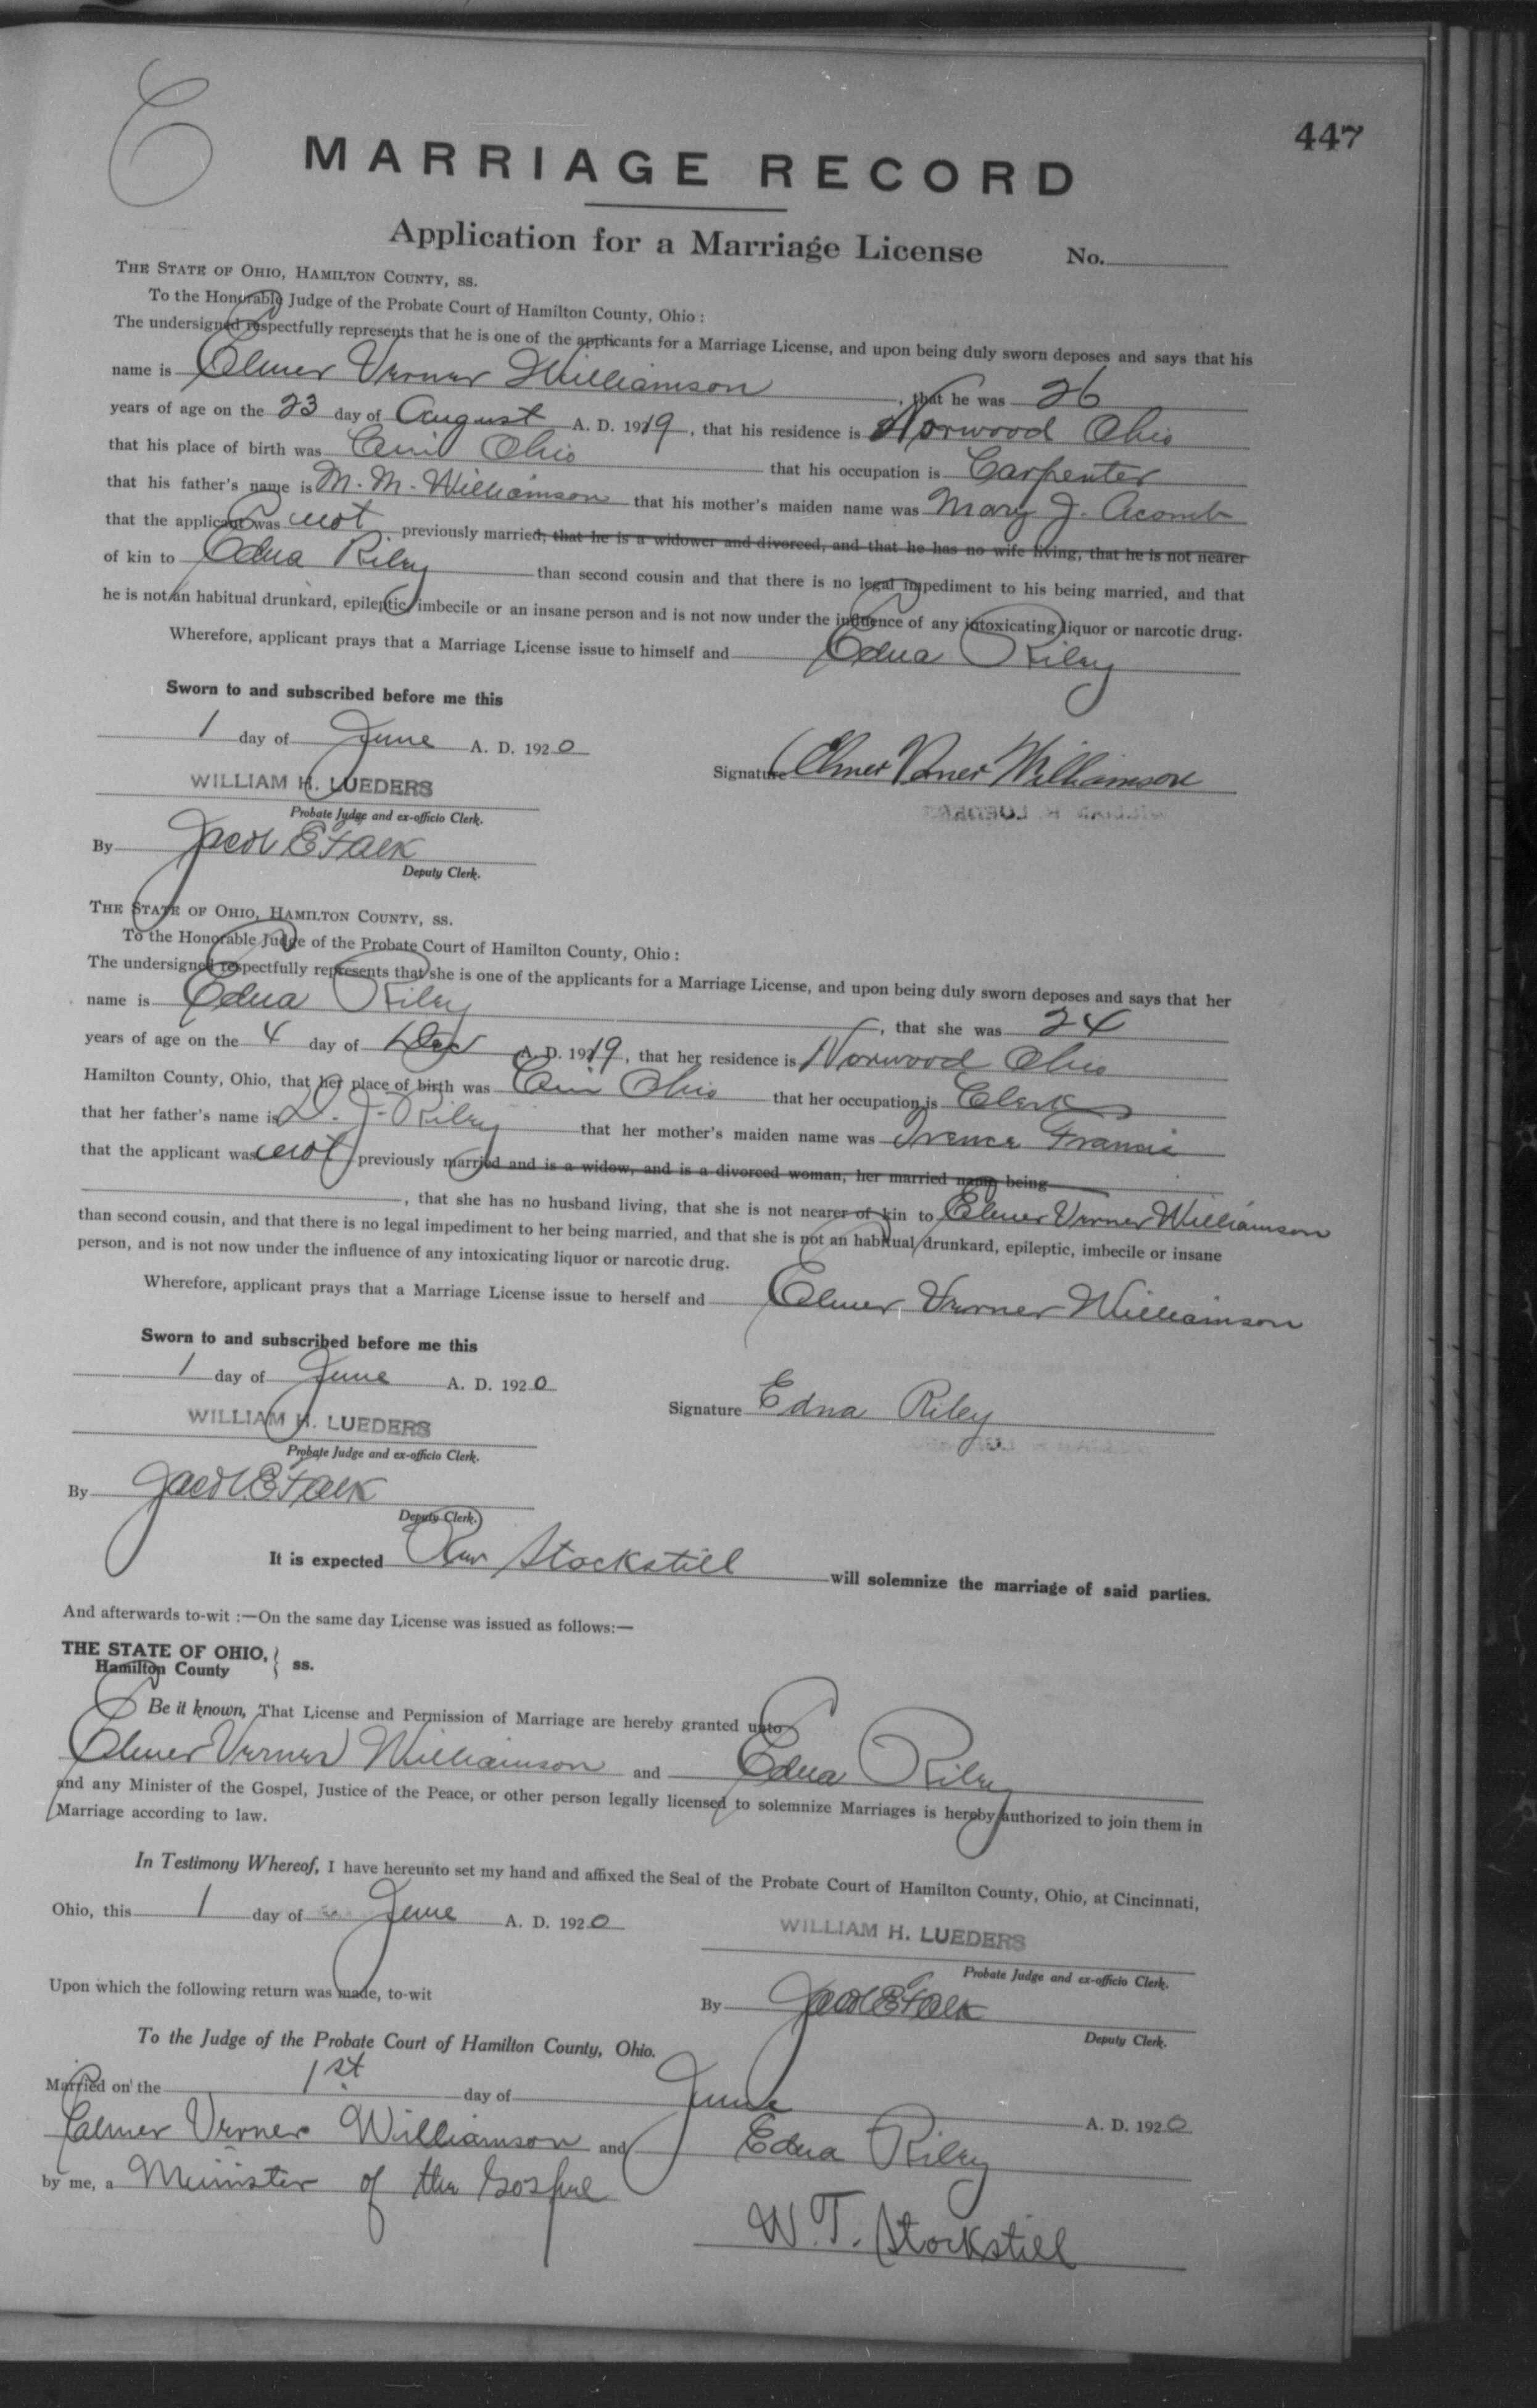 447
MARRIAGE RECORD
Application for a Marriage License No.
THE STATE OF OHIO, HAMILTON COUNTY, SS.
To the Honorable Judge of the Probate Court of Hamilton County, Ohio :
The undersigned respectfully represents that he is one of the applicants for a Marriage License, and upon being duly sworn deposes and says that his
name is Elmer Verner Williamson, that he was 26
years of age on the 23 day of August A. D. 1919, that his residence is Norwood Ohio
that his place of birth was Cin Ohio that his occupation is Carpenter
that his father's name is M. M. Williamson that his mother's maiden name was Mary J. Acomb
that the applicant was not previously married, that he is a widower and divorced, and that he has no wife living, that he is not nearer
of kin to Edna Riley than second cousin and that there is no legal impediment to his being married, and that
he is not an habitual drunkard, epileptic, imbecile or an insane person and is not now under the influence of any intoxicating liquor or narcotic drug.
Wherefore, applicant prays that a Marriage License issue to himself and Edna Riley
Sworn to and subscribed before me this
1 day of June A. D. 1920
Signature Elmer Verner Williamson
WILLIAM H. LUEDERS
Probate Judge and ex-officio Clerk.
By Jacob E Falk
Deputy Clerk.
THE STATE OF OHIO, HAMILTON COUNTY, SS.
To the Honorable Judge of the Probate Court of Hamilton County, Ohio :
The undersigned respectfully represents that she is one of the applicants for a Marriage License, and upon being duly sworn deposes and says that her
name is Edna Riley, that she was 24
years of age on the 4 day of Dec A. D. 1919, that her residence is Norwood Ohio
Hamilton County, Ohio, that her place of birth was Cin Ohio that her occupation is Clerk
that her father's name is D. J. Riley that her mother's maiden name was Francis
that the applicant was not previously married and is a widow, and is a divorced woman, her married name being
, that she has no husband living, that she is not nearer of kin to Elmer Verner Williamson
than second cousin, and that there is no legal impediment to her being married, and that she is not an habitual drunkard, epileptic, imbecile or insane
person, and is not now under the influence of any intoxicating liquor or narcotic drug.
Wherefore, applicant prays that a Marriage License issue to herself and Elmer Verner Williamson
Sworn to and subscribed before me this
1 day of June A. D. 1920
Signature Edna Riley
WILLIAM H. LUEDERS
Probate Judge and ex-officio Clerk.
By Jacob E Falk
Deputy Clerk.
It is expected Rev Stockstill will solemnize the marriage of said parties.
And afterwards to-wit :—On the same day License was issued as follows:—
THE STATE OF OHIO, } ss.
Hamilton County
Be it known, That License and Permission of Marriage are hereby granted unto
Elmer Verner Williamson and Edna Riley
and any Minister of the Gospel, Justice of the Peace, or other person legally licensed to solemnize Marriages is hereby authorized to join them in
Marriage according to law.
In Testimony Whereof, I have hereunto set my hand and affixed the Seal of the Probate Court of Hamilton County, Ohio, at Cincinnati,
Ohio, this 1 day of June A. D. 1920
WILLIAM H. LUEDERS
Probate Judge and ex-officio Clerk.
Upon which the following return was made, to-wit
By Jacob E Falk
Deputy Clerk.
To the Judge of the Probate Court of Hamilton County, Ohio.
Married on the 1st day of June A. D. 1920
Elmer Verner Williamson and Edna Riley
by me, a Minister of the Gospel
W. T. Stockstill